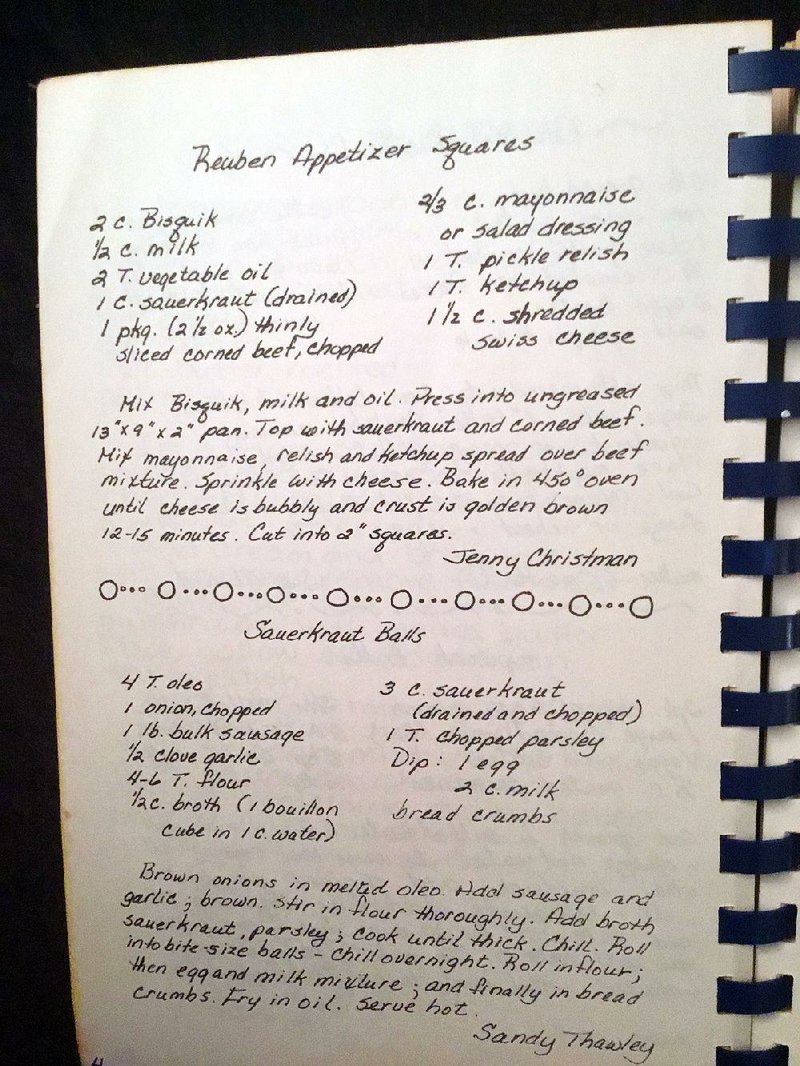 Reuben Appetizer Squares
2 c. Bisquik
1/2 c. milk
2 T. vegetable oil
1 c. sauerkraut (drained)
1 pkg. (2 1/2 oz.) thinly
sliced corned beef, chopped
2/3 c. mayonnaise
or salad dressing
1 T. pickle relish
1 T. ketchup
1 1/2 c. shredded
swiss cheese
Mix Bisquik, milk and oil. Press into ungreased
13"x9"x2" pan. Top with sauerkraut and corned beef.
Mix mayonnaise, relish and ketchup spread over beef
mixture. Sprinkle with cheese. Bake in 450° oven
until cheese is bubbly and crust is golden brown
12-15 minutes. Cut into 2" squares.
Jenny Christman
Sauerkraut Balls
4 T. oleo
1 onion, chopped
1 lb. bulk sausage
1/2 clove garlic
4-6 T. flour
1/2 c. broth (1 bouillon
cube in 1 c. water)
3 c. sauerkraut
(drained and chopped)
1 T. chopped parsley
Dip: 1 egg
2 c. milk
bread crumbs
Brown onions in melted oleo. Add sausage and
garlic; brown. Stir in flour thoroughly. Add broth
sauerkraut, parsley; cook until thick. Chill. Roll
into bite-size balls - chill overnight. Roll in flour;
then egg and milk mixture; and finally in bread
crumbs. Fry in oil. Serve hot.
Sandy Thawley
4